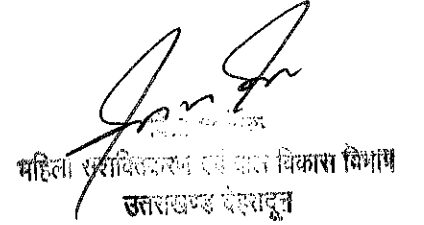 महिला सशक्तिकरण एवं बाल विकास विभाग
उत्तराखण्ड देहरादून